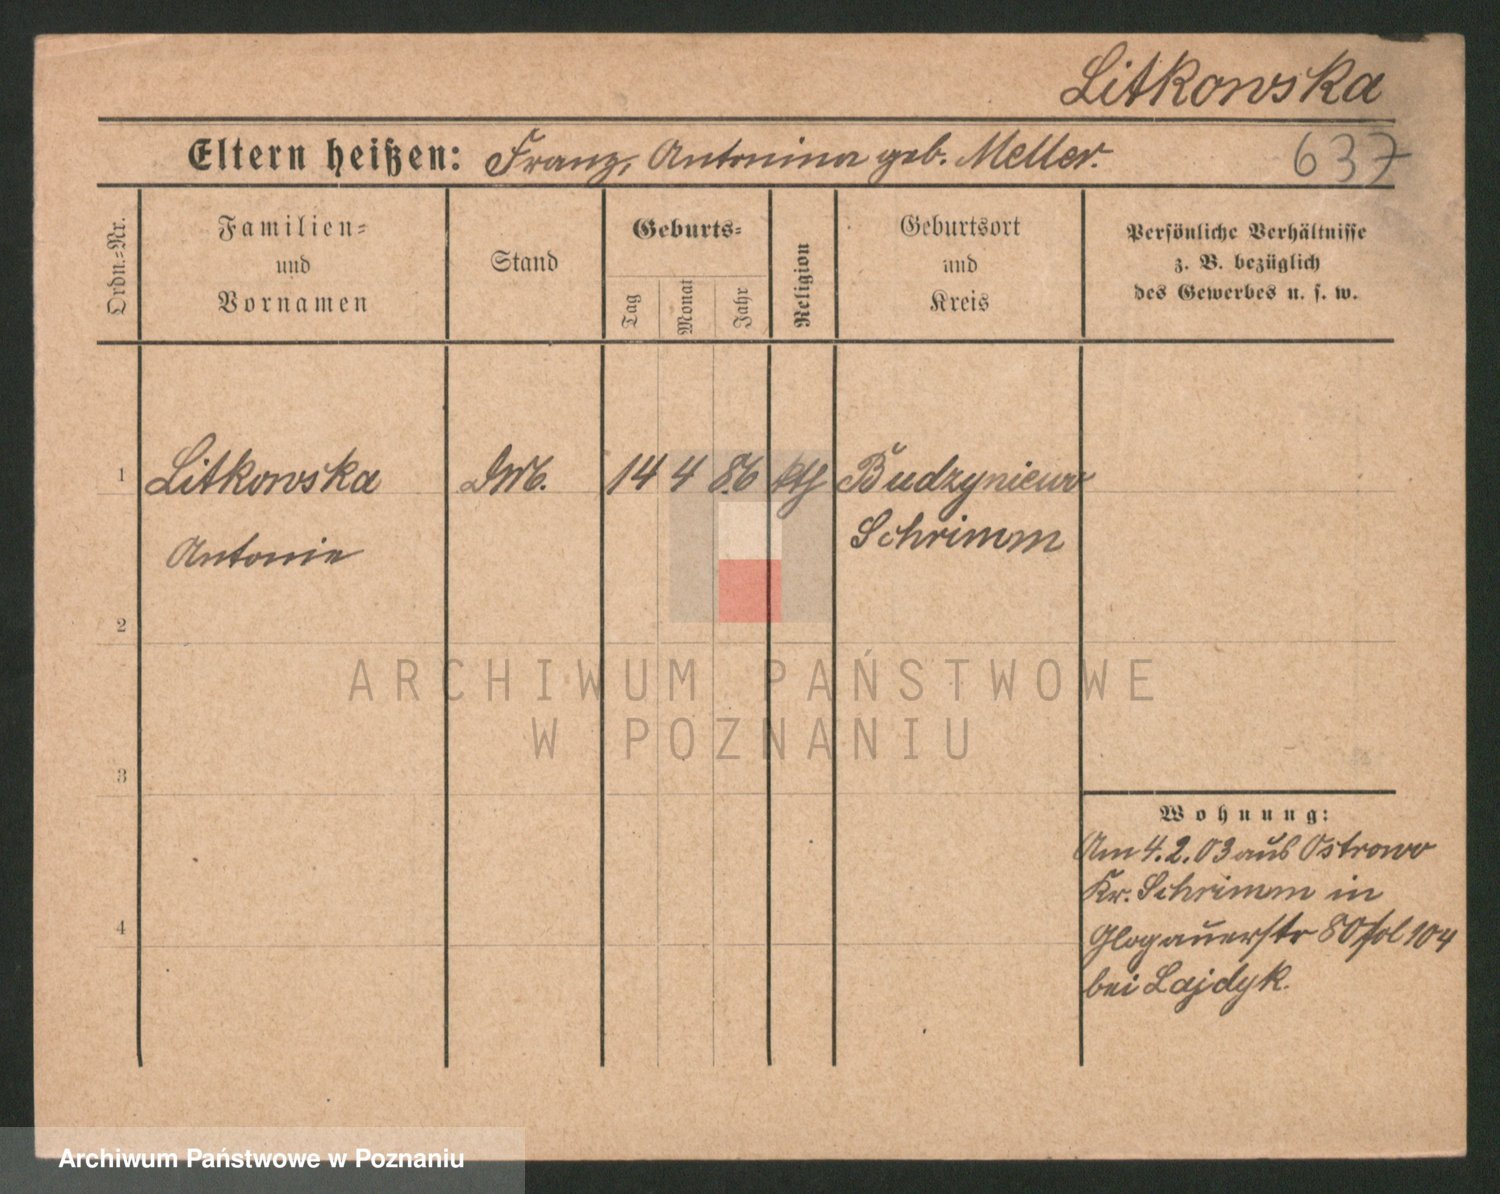 Litkowska
Eltern heißen: Franz, Antonina geb. Meller.
637
Ordn.=Nr.
Familien=
und
Vornamen
Stand
Geburts=
Tag
Monat
Jahr
Religion
Geburtsort
und
Kreis
Persönliche Verhältnisse
z. B. bezüglich
des Gewerbes u. s. w.
1 Litkowska 14 4 86 kth Budzyniewo
Antonie Schrimm
2
ARCHIWUM PAŃSTWOWE
W POZNANIU
3
Wohnung:
Am 4.2.03 aus Ostrowo
Kr. Schrimm in
4
Glogauerstr 80 fol 104
bei Lajdyk.
Archiwum Państwowe w Poznaniu